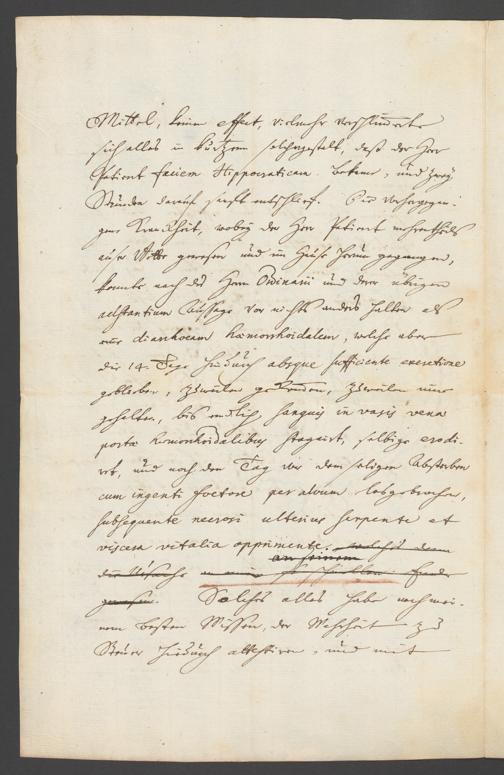 Mittel, keinen effect, vielmehr verschlimmerte
sich alles in kurtzem solchergestalt, daß der Herr
Patient faciem Hippocraticam bekame, und zwey
Stunden darauf sanft entschlief. Die vorhergegan-
gene Kranckheit, wobey der Herr Patient mehrentheils
auser Bette gewesen und im Hause herum gegangen,
konnte nach des Herrn Ordinarii und derer übrigen
adstantium Aussage vor nichts anders halten als
eine diarrhoeam haemorrhoidalem, welche aber
die 14 Tage hindurch absque sufficiente excretione
geblieben, zuweilen zuweilen inne
gehalten, bis endlich, sanguis in vasis venae
portae haemorrhoidalibus stagnirt, selbige erodi-
ret, und noch den Tag vor dem seligen Absterben
cum ingenti foetore per alvum losgebrochen,
subsequente necrosi ulterius serpente et
viscera vitalia opprimente.
an seinem
Solches alles habe nach mei-
nem besten Wissen, der Wahrheit zu
Steuer hiedurch attestiren, und mit